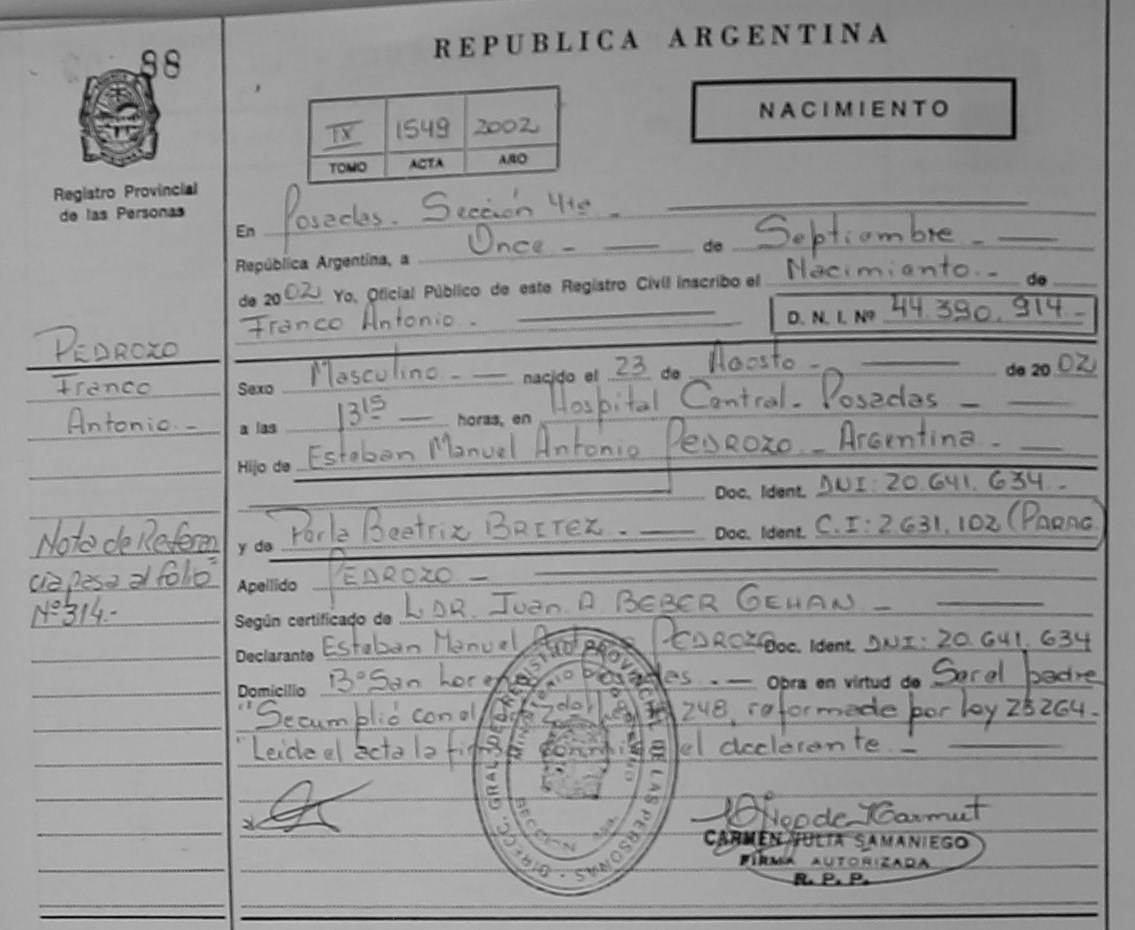 88
REPUBLICA ARGENTINA
NACIMIENTO
IX 1549 2002
TOMO ACTA AÑO
Registro Provincial
de las Personas
En Posadas. Sección 4ta -
República Argentina, a Once - de Septiembre -
de 2002 Yo, Oficial Público de este Registro Civil inscribo el Nacimiento - de
Franco Antonio - D. N. I. Nº 44.390.914-
PEDROZO
Franco
Antonio -
Sexo Masculino - nacido el 23 de Agosto - de 2002
a las 13 15 horas, en Hospital Central - Posadas -
Hijo de Esteban Manuel Antonio PEDROZO - Argentina -
Doc. Ident. DNI: 20.641.634-
y de Perla Beatriz BRITEZ - Doc. Ident. C.I: 2631.102 (PARAG)
Nota de Referen
cia pasa al folio
Nº 314.-
Apellido PEDROZO -
Según certificado de L. DR. Juan A. BEBER GEHAN -
Declarante Esteban Manuel Antonio PEDROZO Doc. Ident. DNI: 20.641.634
Domicilio Bº San Posadas. - Obra en virtud de Ser el padre
"Se cumplió con el 248, reformada por ley 23264-
"Leída el acta la firma conmigo el declarante -
DIREC. GRAL. DEL REGISTRO PROVINCIAL DE LAS PERSONAS
MINISTERIO DE GOBIERNO
SECCION 4ta.
CARMEN JULIA SAMANIEGO
FIRMA AUTORIZADA
R. P. P.